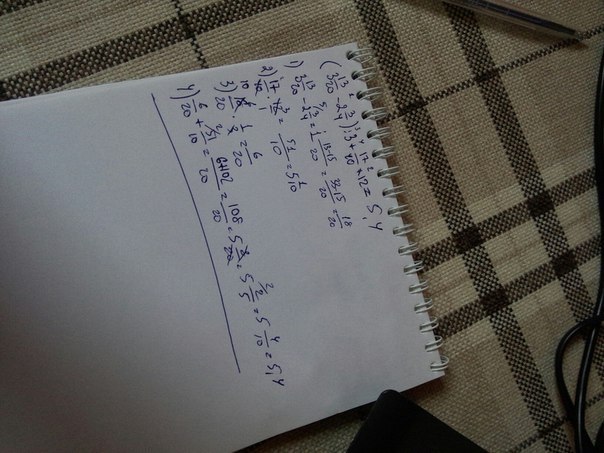 (3 13/20 - 2 3/4) : 3 + 17/40 × 12 = 5,4
1) 3 13/20 - 2 3/4 = 1 13-15/20 = 33-15/20 = 18/20
2) 17/40 · 12 = 51/10 = 5 1/10
3) 18/20 · 1/3 = 6/20
4) 6/20 + 51/10 = 6+102/20 = 108/20 = 5 8/20 = 5 2/5 = 5 4/10 = 5,4